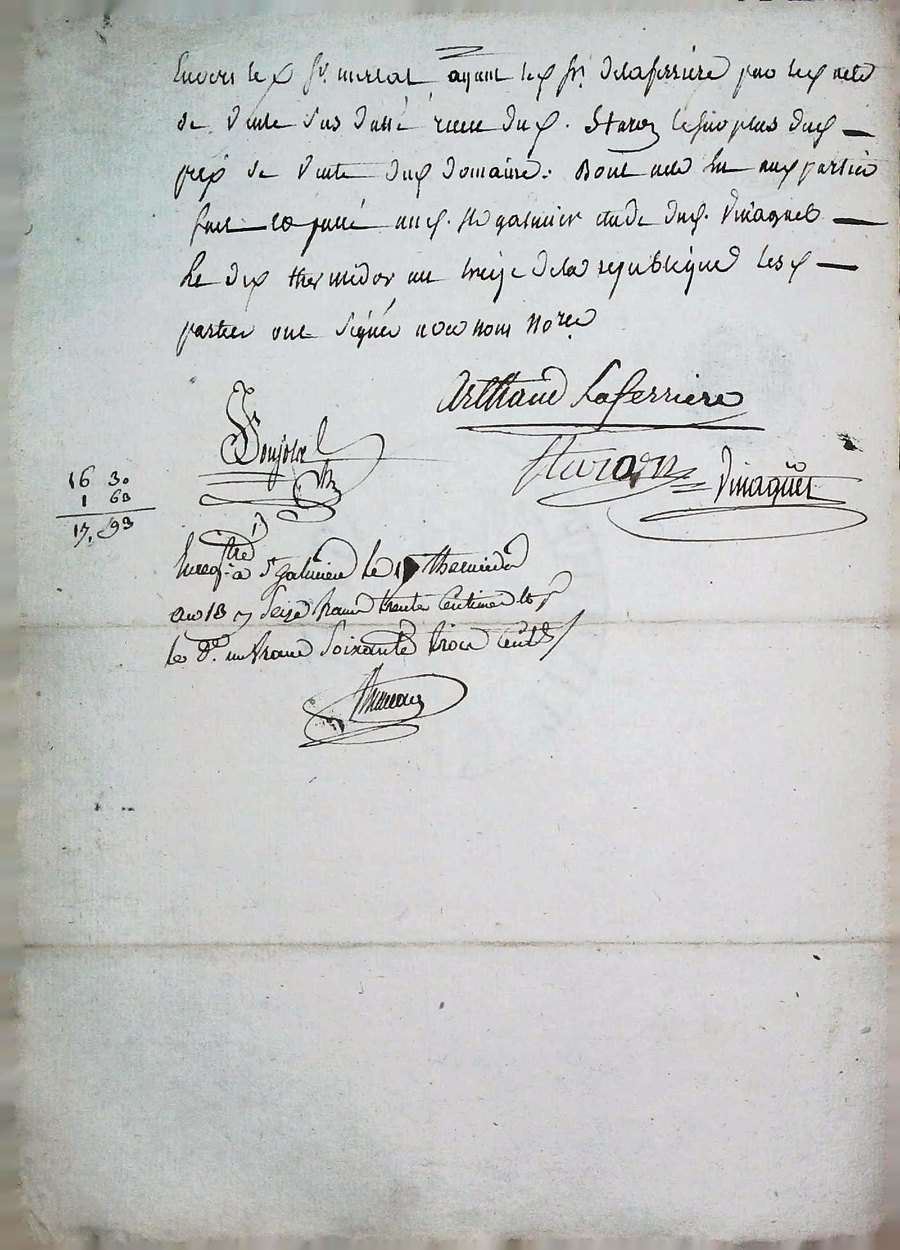 Envers le sr. mersat ayant le sr. delaferriere par le acte
de vente sus datté recue du Staron le surplus du
prix de vente du domaine. Dont acte lu aux parties
fait et passé a St galmier etude du Vinagnet
Le dix thermidor an treize de la republique les
parties ont signées avec nous Nore
Arthaud Laferriere
Staron Vinaquet
16 30
1 63
17, 93
Enregtré a St galmier le thermidor
an 13 Seize francs trente Centimes
le De. un franc Soixante trois Centes